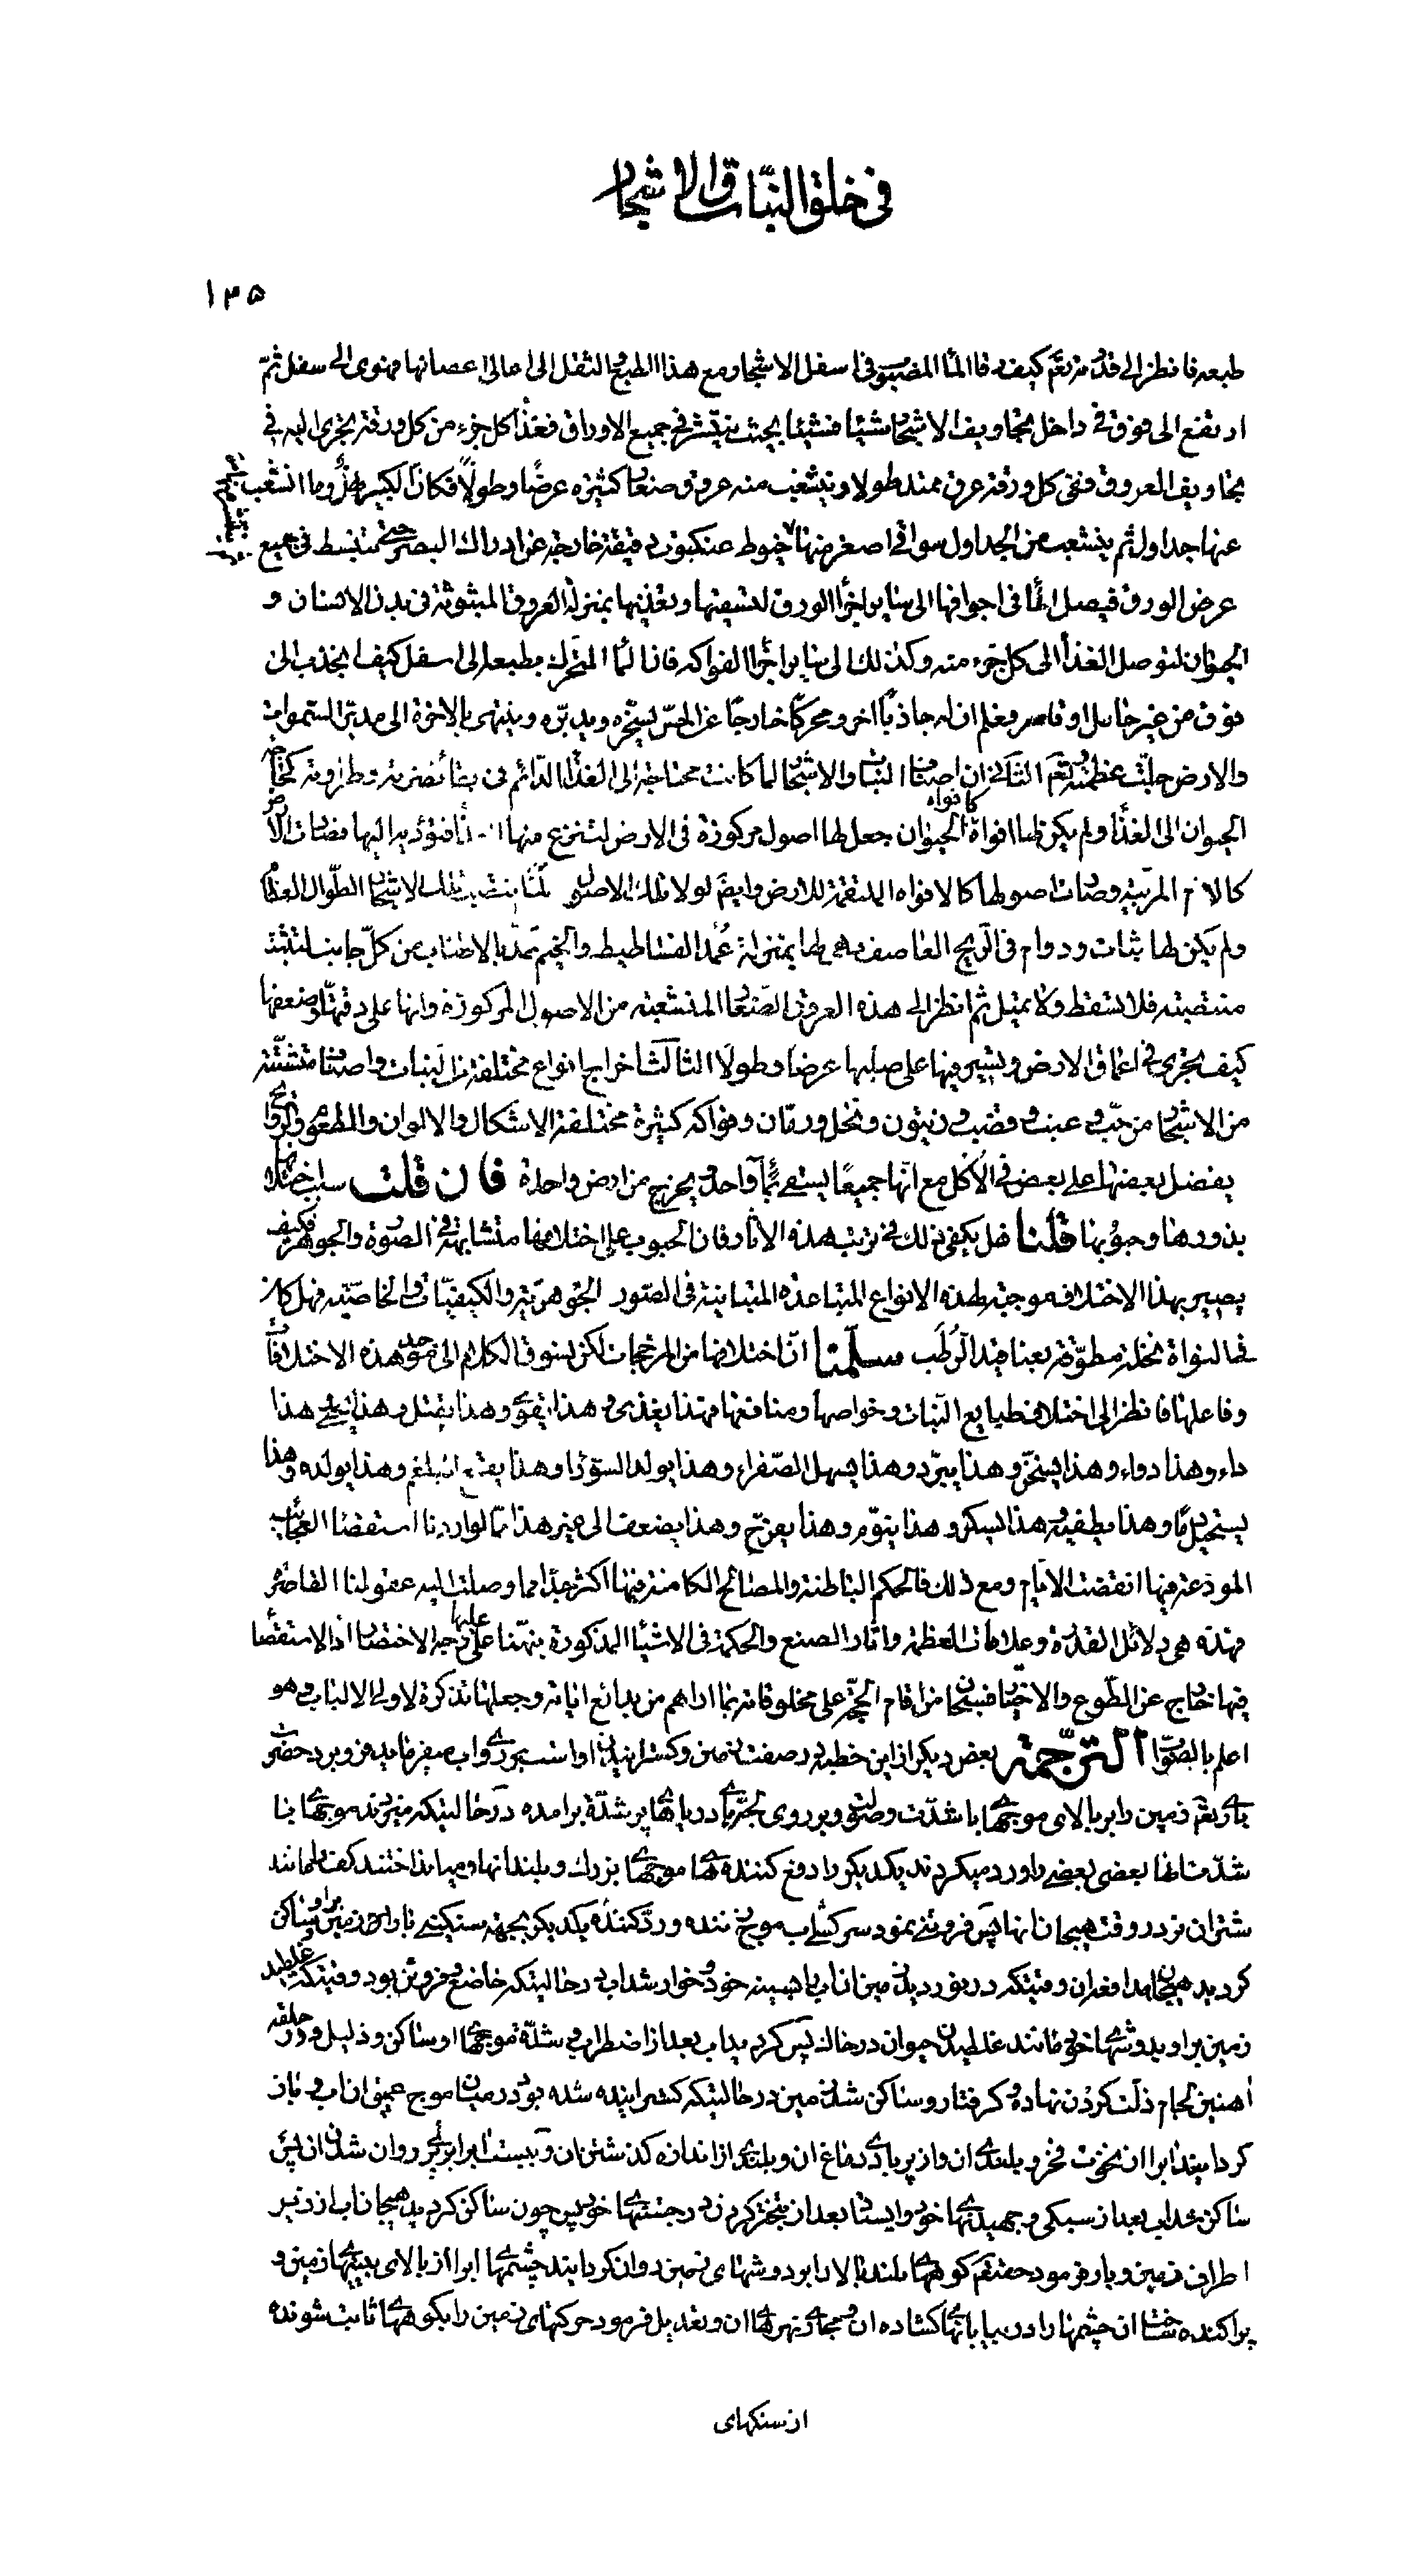 فی خلق النبات والاشجار
۱۳۵
طبعه فانظر الی قدرته تعم کیف رقا الماء المصبوب فی اسفل الاشجار مع هذا الطبع والثقل الی اعالی اغصانها فهوی الی سفل ثم
ارتفع الی فوق فی داخل تجاویف الاشجار شیئا فشیئا بحیث ینتشر فی جمیع الاوراق فغذاء کل جزء من کل ورقة یجری الیه فی
تجاویف العروق ففی کل ورقة عرق ممتد طولا وینشعب منه عروق صغار کثیرة عرضا وطولا فکان الکبیر نهر وما انشعب
عنها جداول ثم ینشعب من الجداول سواقی اصغر منها ثم خیوط عنکبوتیة دقیقة خارجة عن ادراک البصر حتی تنبسط فی جمیع
عرض الورق فیصل الماء فی اجوافها الی سایر اجزاء الورق لتسقیتها وتغذیتها بمنزلة العروق المبثوثة فی بدن الانسان و
الحیوان لتوصل الغذاء الی کل جزء منه وکذلک الی سایر اجزاء الفواکه فان الماء المتحرک بطبعه الی اسفل کیف انجذب الی
فوق من غیر حامل او قاسر فعلم ان له جاذبا اخر ومحرکا خارجا عن الحس یسخره ویدبره وینتهی بالاخرة الی مدبر السموات
والارض جلت عظمته تعم الثانی ان اصناف النبات والاشجار لما کانت محتاجة الی الغذاء الدائم فی بقاء نضرته وطراوته کحاجة
الحیوان الی الغذاء ولم یکن لها افواه کافواه الحیوان جعل لها اصول مرکوزة فی الارض لتنزع منها الماء فتؤدیه الیها فصارت الارض
کالام المربیة وصارت اصولها کالافواه الملتقمة للارض وایضا لولا تلک الاصول لما انتصبت تلک الاشجار الطوال العظام
ولم یکن لها ثبات ودوام فی الریح العاصف فهی لها بمنزلة عمد الفساطیط والخیم تمد بالاطناب من کل جانب لتثبت
منتصبة فلا تسقط ولا تمیل ثم انظر الی هذه العروق الصغار المنشعبة من الاصول المرکوزة وانها علی دقتها وضعفها
کیف تجری فی اعماق الارض وتسیر فیها علی صلبها عرضا وطولا الثالث اخراج انواع مختلفة من النبات واصناف متشتتة
من الاشجار من حب وعنب وقضب وزیتون ونخل ورمان وفواکه کثیرة مختلفة الاشکال والالوان والطعوم والروایح
یفضل بعضها علی بعض فی الاکل مع انها جمیعا یسقی بماء واحد ویخرج من ارض واحدة فان قلت سبب اختلافها
بذورها وحبوبها قلنا هل یکفی ذلک فی ترتب هذه الاثار فان الحبوب علی اختلافها متشابهة فی الصورة والجوهر فکیف
یصیر بهذا الاختلاف موجبة لهذه الانواع المتباعدة المتباینة فی الصور الجوهریة والکیفیات والخاصیة فهل کان
فی النواة نخلة مطوقة بعناقید الرطب سلمنا ان اختلافها من المرجحات لکن نسوق الکلام الی موجد هذه الاختلافات
وفاعلها فانظر الی اختلاف طبایع النبات وخواصها ومنافعها فهذا یغذی وهذا یقوی وهذا یقتل وهذا یحیی هذا
داء وهذا دواء وهذا یسخن وهذا یبرد وهذا یسهل الصفراء وهذا یولد السوداء وهذا یقمع البلغم وهذا یولده وهذا
یستحیل دما وهذا یطفیه هذا یسکر وهذا ینوم وهذا یفرح وهذا یضعف الی غیر هذا مما لو اردنا استقصاء العجائب
المودعة فیها انقضت الایام ومع ذلک فالحکم الباطنة والمصالح الکامنة فیها اکثر جدا مما وصلت الیه عقولنا القاصرة
فهذه هی دلائل القدرة وعلامات العظمة واثار الصنع والحکمة فی الاشیاء المذکورة نبهنا علیها علی وجه الاختصار اذ الاستقصاء
فیها خارج عن الطوع والاختیار فسبحان من اقام الحجة علی مخلوقاته بما اراهم من بدائع ایاته وجعلها تذکرة لاولی الالباب وهو
اعلم بالصواب الترجمة بعض دیکر از این خطبه در صفت زمین وکسترانیدن او است بر روی اب میفرماید فرو برد حضرت
باریتعم زمین را بر بالای موجهای با شدت وصولت وبر روی لجهای دریاهای پر شدة برامده درحالتیکه میزدند موجهای با
شدت انها بعضی بعضی را ورد میکردند یکدیکر را دفع کننده های موجهای بزرک وبلند انها ومیانداختند کفها را مانند
شتران نر در وقت هیجان انها پس فروتنی نمود سرکشی اب موج زننده ورد کننده یکدیکر بجهة سنکینی بار زمین بر او وساکن
کردید هیجان مدافعه ان وقتیکه در نوردید زمین ان اب را بسینه خود وخوار شد اب درحالتیکه خاضع وفروتن بود وقتیکه غلطید
زمین بر او بدوشهای خود مانند غلطیدن حیوان در خاک پس کردید اب بعد از اضطراب وشدة موجهای او ساکن وذلیل ودر حلقه
اهنین لجام ذلت کردن نهاده وکرفتار وساکن شد زمین درحالتیکه کسترانیده شده بود در میان موج عمیق ان اب وباز
کردانید اب را از نخوت وفخر وبلندی ان واز پر بادی دماغ ان وبلندی از اندازه کذشتن ان وببست اب را بر پری روان شدن ان پس
ساکن شد اب بعد از سبکی وجهیدنهای خود وایستاد بعد از تبختر کردن در جستنهای خود پس چون ساکن کردید هیجان اب از زیر
اطراف زمین وبار فرمود حقتعم کوههای بلند بالا را بر دوشهای زمین روان کردانید چشمهای اب را از بالای بینیهای زمین و
پراکنده ساخت ان چشمها را در بیابانهای کشاده ان ومجاری نهرهای ان وتعدیل فرمود حرکتهای زمین را بکوههای ثابت شونده
از سنکهای